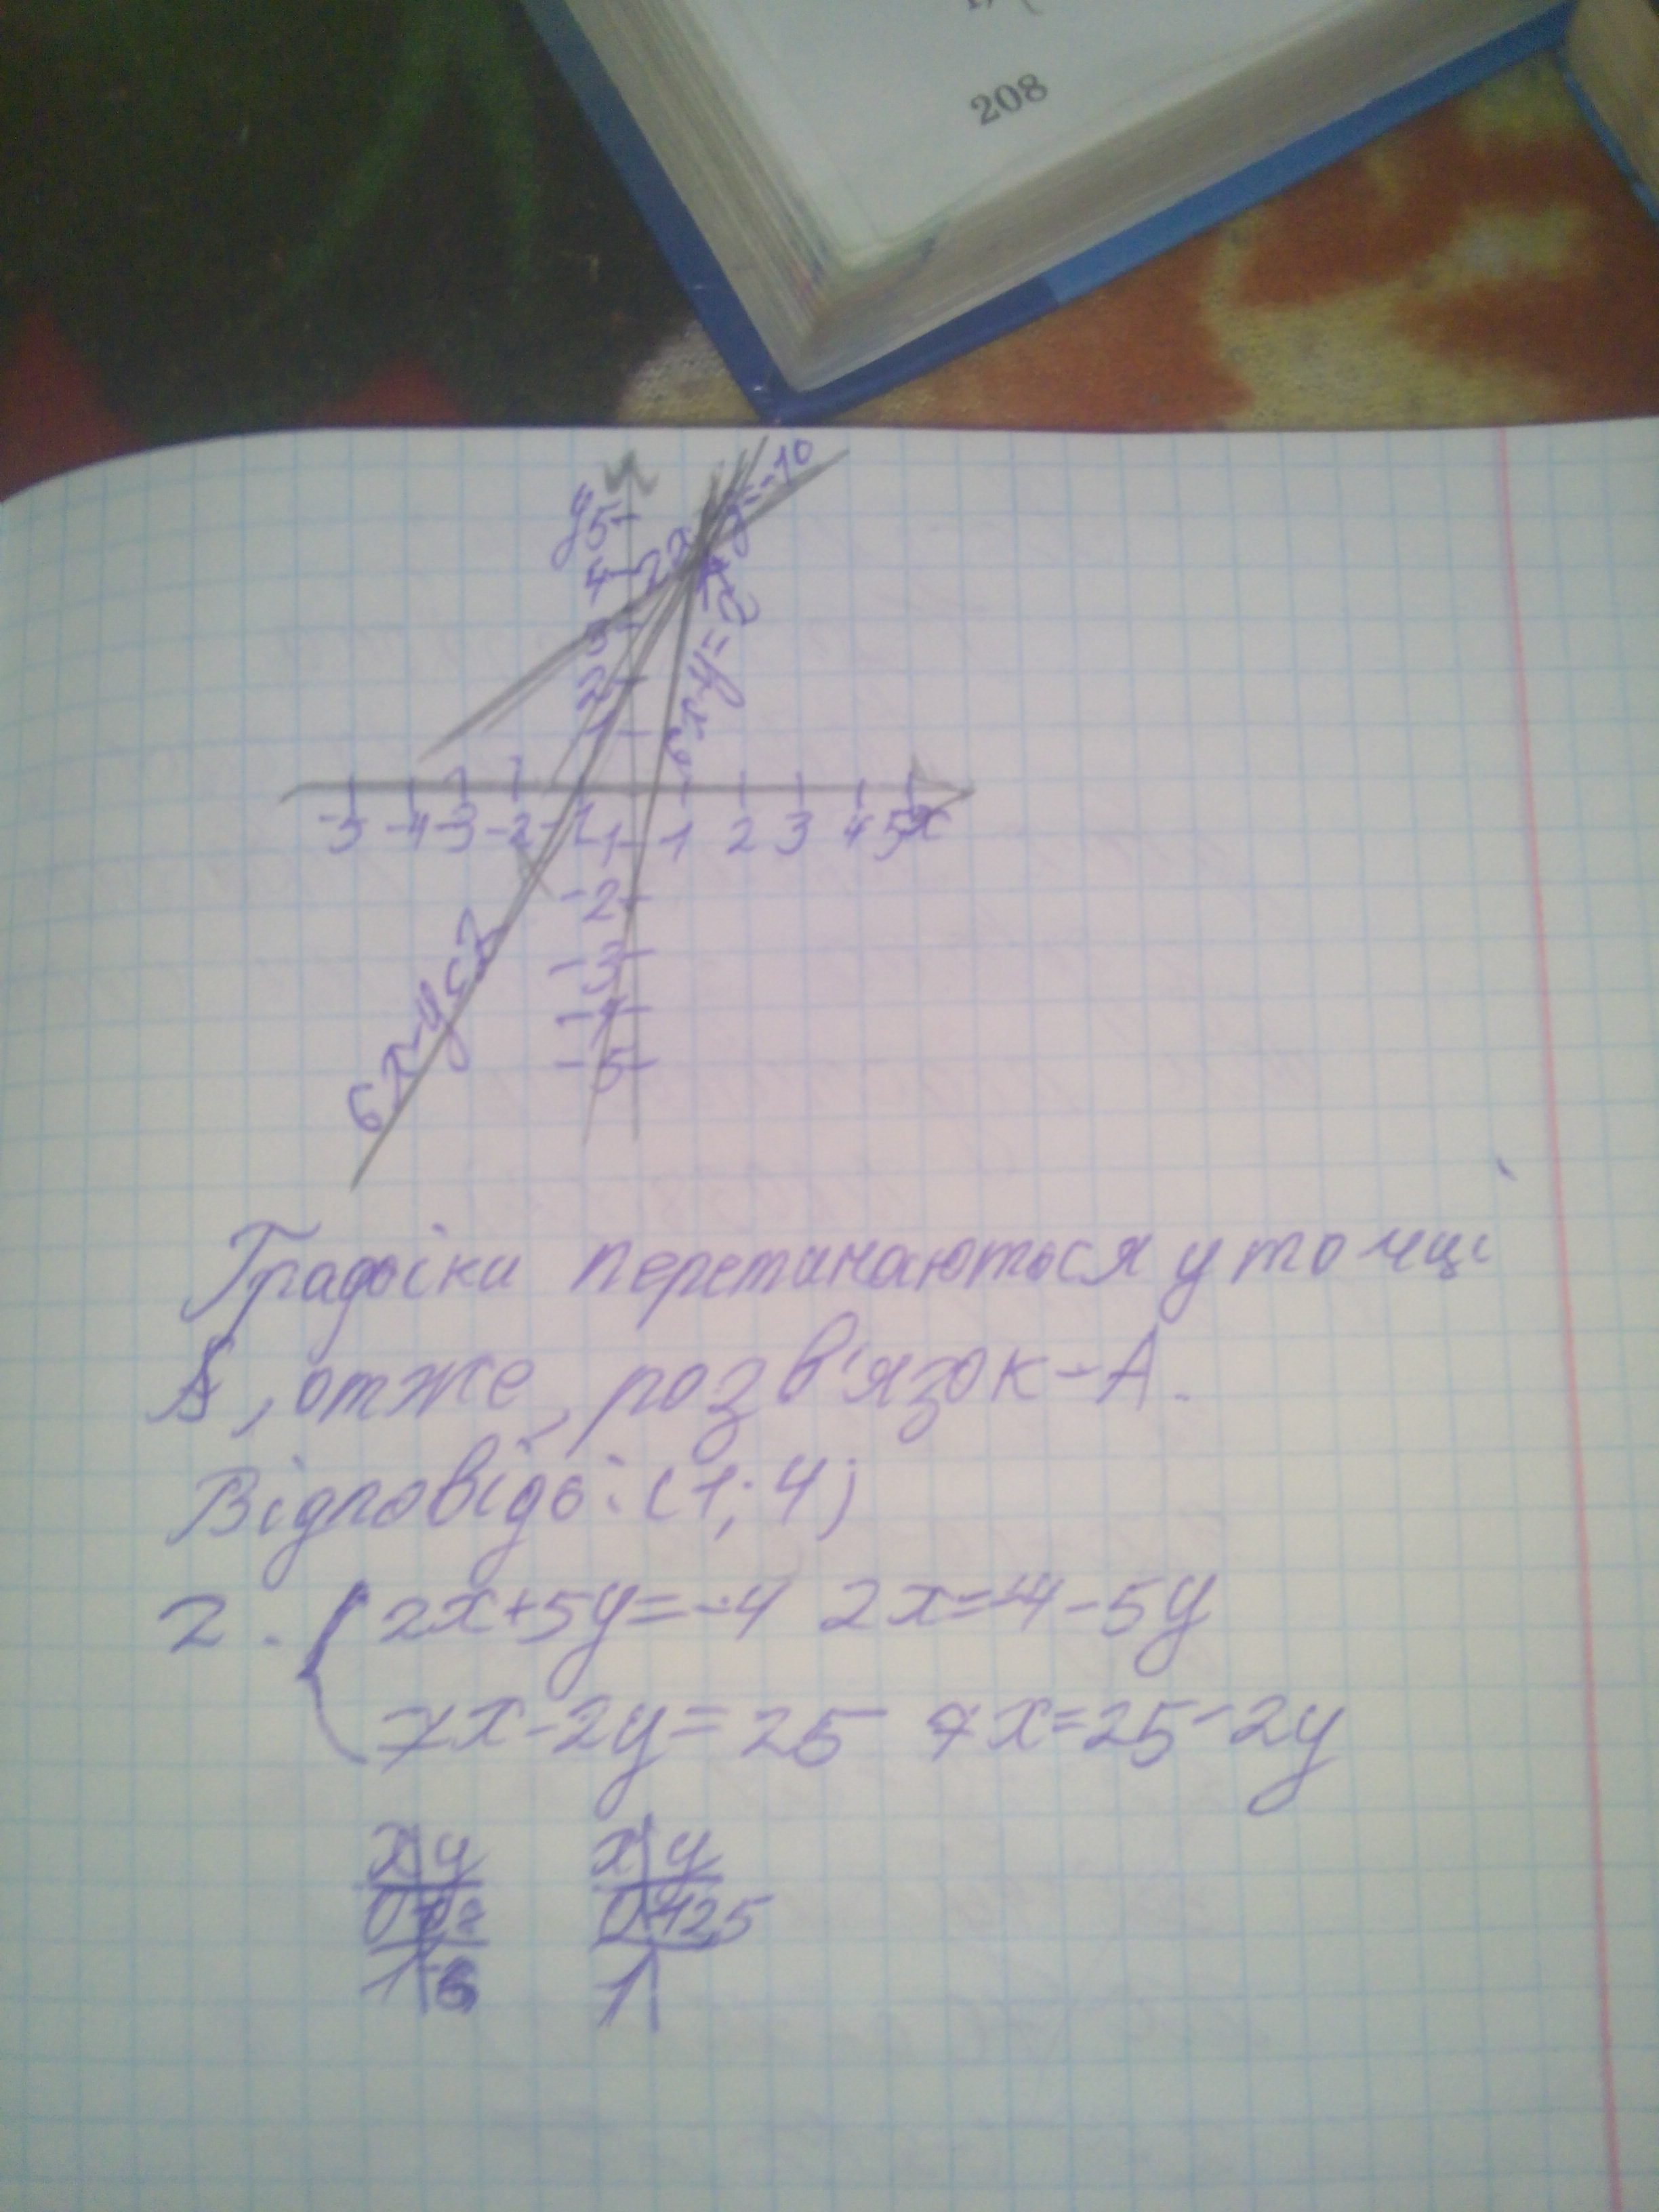 208
y
5
4
3
2
1
-5 -4 -3 -2 -1 1 2 3 4 5 x
-1
-2
-3
-4
-5
6x-y=2
6x-y=2
Графіки перетинаються у точці
А, отже, розв'язок-А.
Відповідь: (1; 4)
2. 2x+5y=-4 2x=-4-5y
7x-2y=25 7x=25-2y
x y x y
0 0 -12,5
1 1